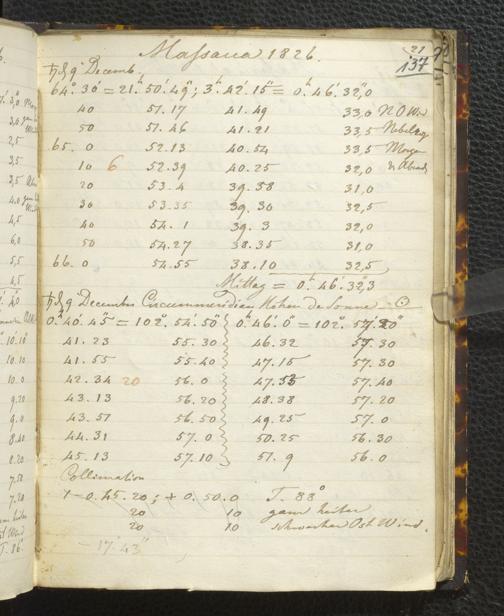 Massaua 1826.
21
137
♄ d 9t Decemb.
64° 30' = 21h 50' 49"; 3h 42' 15" = 0h 46' 32,0
40 51.17 41.49 33,0 NO Wind
50 51.46 41.21 33,5 Nebelig
65. 0 52.13 40.54 33,5 Morgen
10 6 52.39 40.25 32,0 & Abends
20 53.4 39.58 31,0
30 53.35 39.30 32,5
40 54.1 39.3 32,0
50 54.27 38.35 31,0
66. 0 54.55 38.10 32,5
Mittag = 0h 46' 32,3
♄ d 9t December Circummeridian Höhen der Sonne ☉
0h 40' 45" = 102° 54' 50" 0h 46' 0" = 102° 57' 20"
41.23 55.30 46.32 57.30
41.55 55.40 47.15 57.30
42.34 20 56.0 47.55 57.40
43.13 56.20 48.38 57.20
43.51 56.50 49.25 57.0
44.31 57.0 50.25 56.30
45.13 57.10 51.9 56.0
Collimation
- 0.45.20; + 0.50.0 T. 88°
20 10 ganz heiter
20 10 schwacher Ost Wind.
- 17' 43"